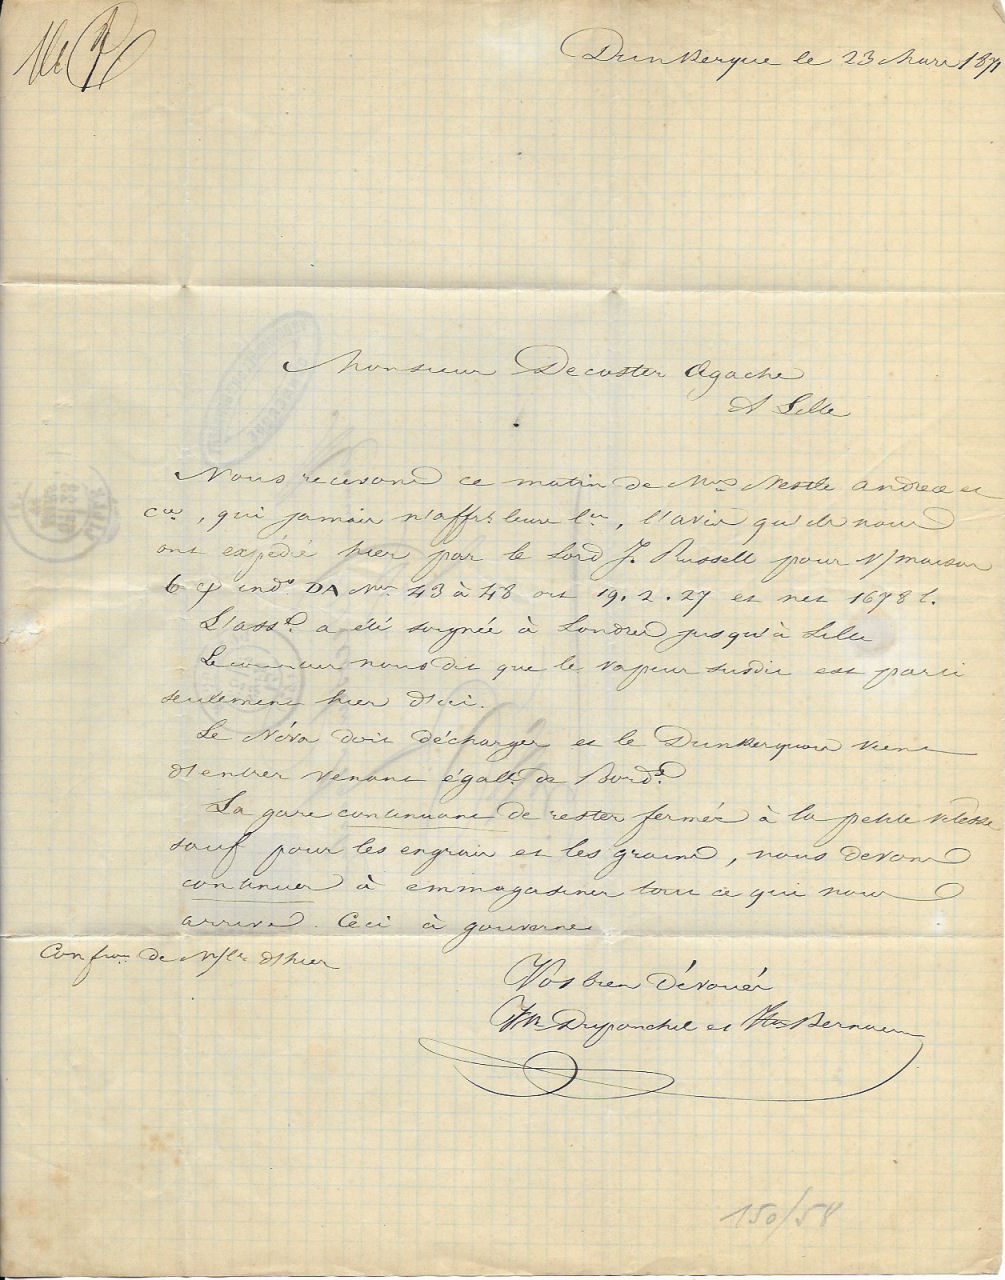 Dunkerque le 23 Mars 1871
Monsieur Decoster Agache
A Lille
Nous recevons ce matin de Mrs Nestle Andreæ et
Cie, qui jamais n'affrt leurs lres, l'avis qu'ils nous
ont expédié hier par le Lord J. Russell pour V/maison
6 indo DA Nos 43 à 48 ort 19.2.27 et net 1678 l.
L'assce a été soignée à Londres jusqu'à Lille
Le courrier nous dit que le vapeur susdit est parti
seulement hier d'ici.
Le Néva doit décharger et le Dunkerquois vient
d'entrer venant égalt de Bordx.
La gare continuant de rester fermée à la petite vitesse
sauf pour les engrais et les grains, nous devons
continuer à emmagasiner tout ce qui nous
arrive. Ceci à gouverne
Confron de N/lre d'hier
Vos bien Dévoués
Duponchel et Bernaert
150/58